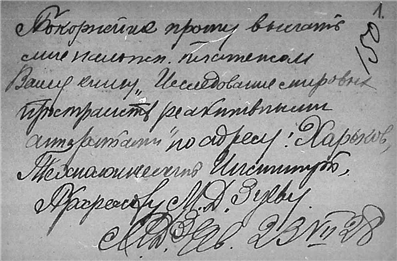 1.
150
Покорнейше прошу выслать
мне налож. платежом
Вашу книгу „Исследование мировых
пространств реактивными
аппаратами" по адресу: Харьков,
Технологический Институт,
М. Д. Зуеву.
23 VII 28